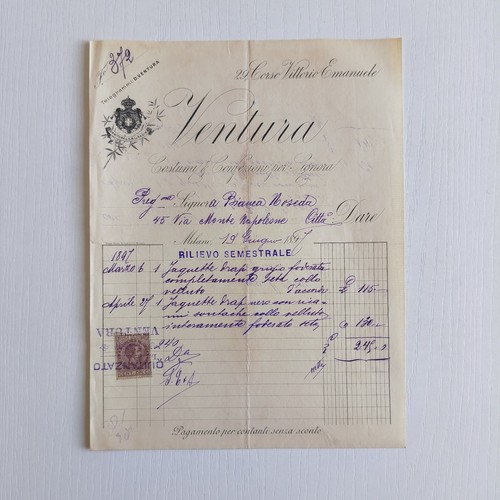 No 372
Telegrammi: GVENTURA
29 Corso Vittorio Emanuele
Ventura
Costumi & Confezioni per Signora
Signora Bianca Noseda
45 Via Monte Napoleone Città Dare
Milano 19 Giugno 1897
RILIEVO SEMESTRALE
1897
Marzo 6 1 Jaquette drap grigio foderata
completamente seta collo
velluto £ 115
Aprile 27 1 Jaquette drap nero con rica
mi soutache collo velluto
interamente foderato seta 130
£ 245
240
QUITANZATO
VENTURA
Pagamento per contanti senza sconto